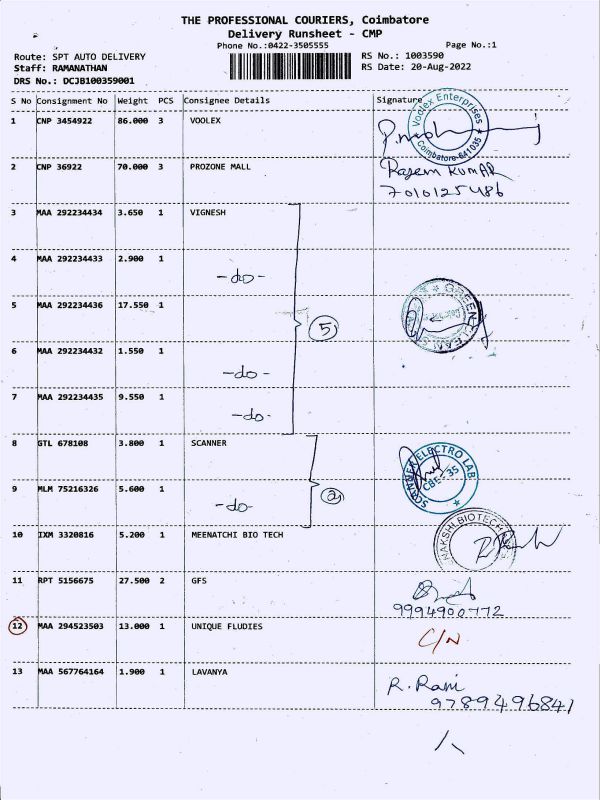 THE PROFESSIONAL COURIERS, Coimbatore
Delivery Runsheet - CMP
Phone No.:0422-3505555
Page No.:1
Route: SPT AUTO DELIVERY
RS No.: 1003590
Staff: RAMANATHAN
RS Date: 20-Aug-2022
DRS No.: DCJB100359001
S No Consignment No Weight PCS Consignee Details Signature
Voolex Enterprises
Coimbatore-641035
1 CNP 3454922 86.000 3 VOOLEX
2 CNP 36922 70.000 3 PROZONE MALL
KUMAR
7010125486
3 MAA 292234434 3.650 1 VIGNESH
4 MAA 292234433 2.900 1
-do-
5 MAA 292234436 17.550 1
5
6 MAA 292234432 1.550 1
-do-
7 MAA 292234435 9.550 1
-do-
8 GTL 678108 3.800 1 SCANNER
ELECTRO LAB
CBE-35
9 MLM 75216326 5.600 1
-do-
2
10 IXM 3320816 5.200 1 MEENATCHI BIO TECH
11 RPT 5156675 27.500 2 GFS
9994900772
12 MAA 294523503 13.000 1 UNIQUE FLUDIES
C/N
13 MAA 567764164 1.900 1 LAVANYA
R. Rani
9789496841